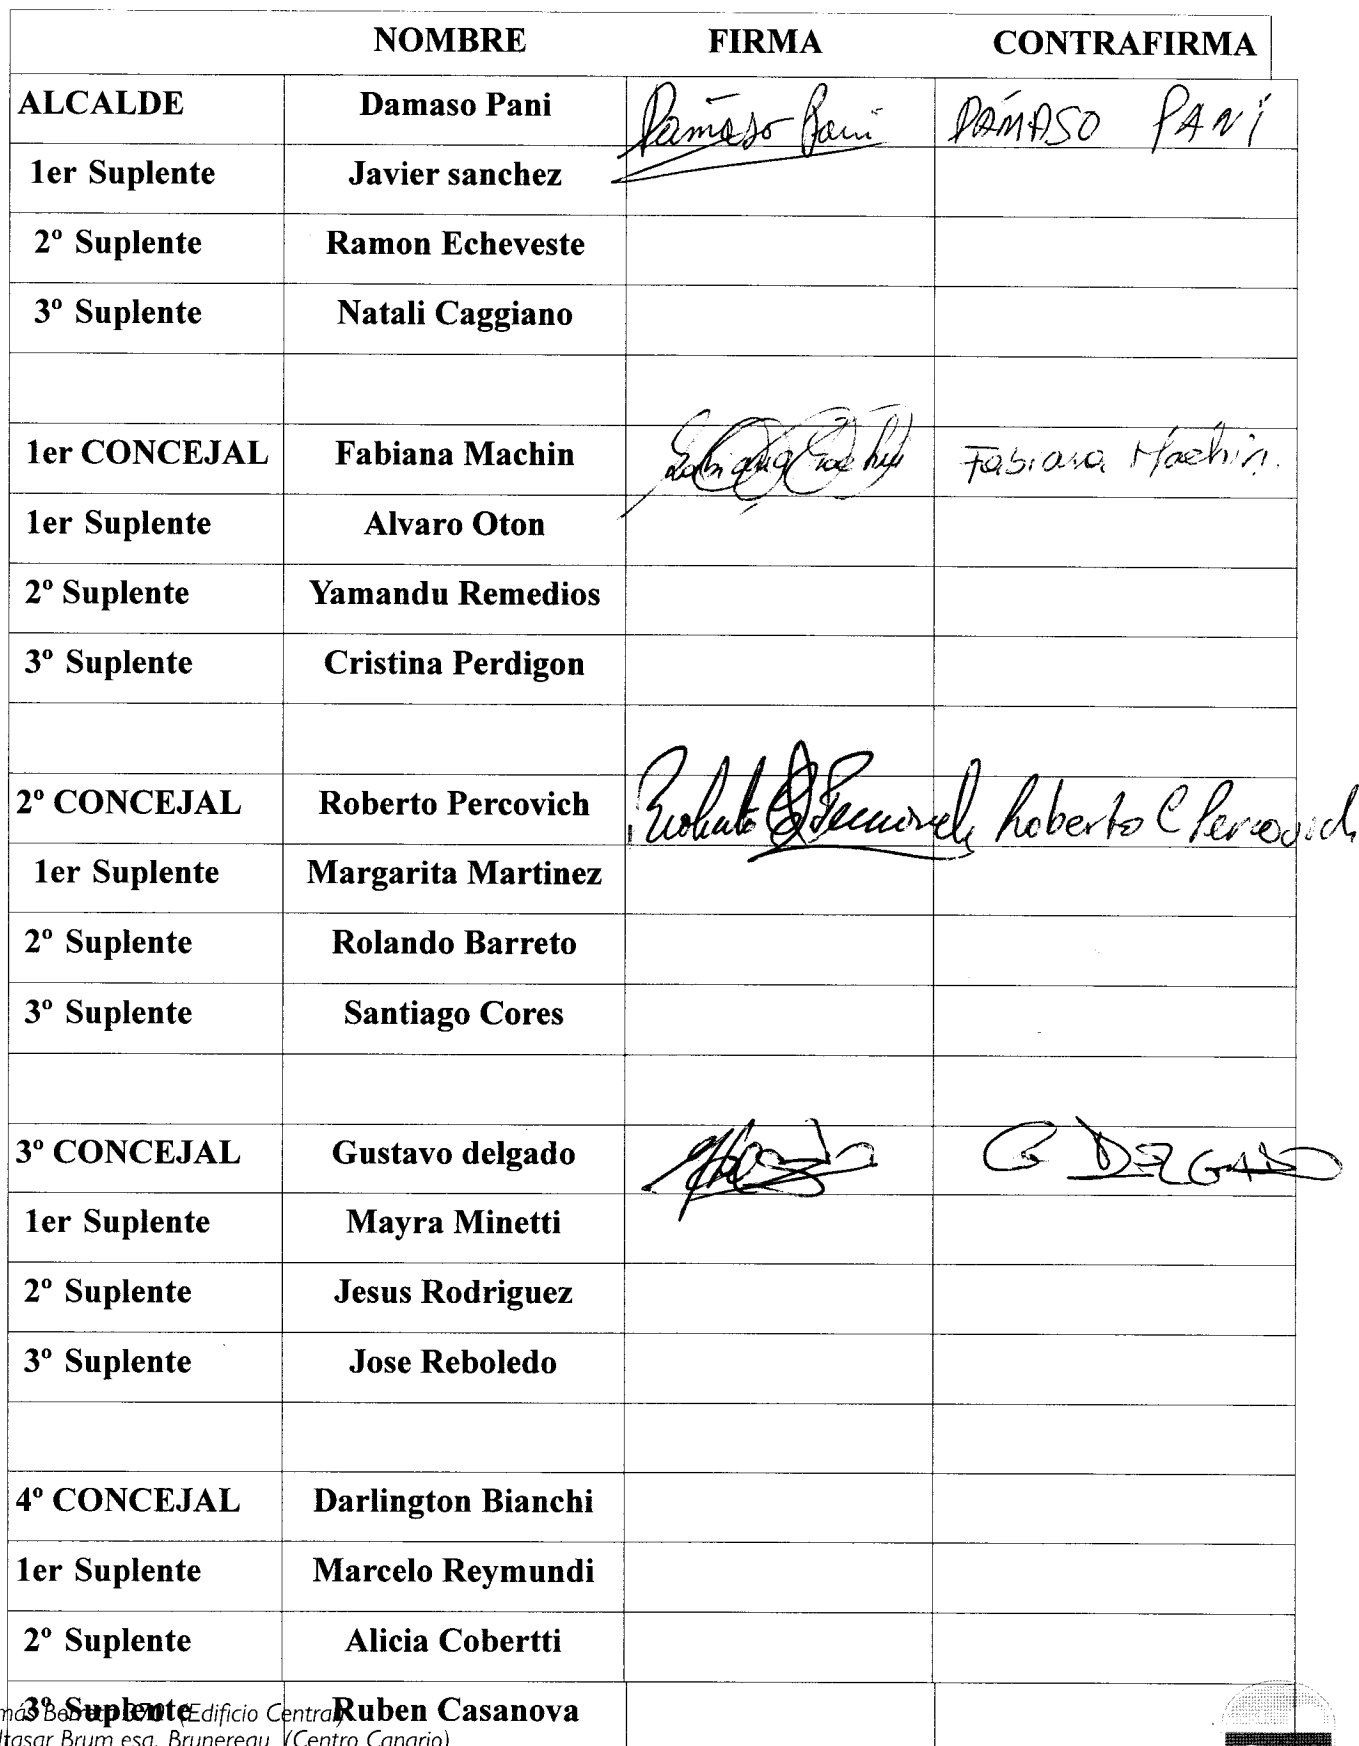 NOMBRE FIRMA CONTRAFIRMA
ALCALDE Damaso Pani Damaso Pani DAMASO PANI
1er Suplente Javier sanchez
2º Suplente Ramon Echeveste
3º Suplente Natali Caggiano
1er CONCEJAL Fabiana Machin Fabiana Machin.
1er Suplente Alvaro Oton
2º Suplente Yamandu Remedios
3º Suplente Cristina Perdigon
2º CONCEJAL Roberto Percovich Roberto C Percovich
1er Suplente Margarita Martinez
2º Suplente Rolando Barreto
3º Suplente Santiago Cores
3º CONCEJAL Gustavo delgado G DELGADO
1er Suplente Mayra Minetti
2º Suplente Jesus Rodriguez
3º Suplente Jose Reboledo
4º CONCEJAL Darlington Bianchi
1er Suplente Marcelo Reymundi
2º Suplente Alicia Cobertti
3º Suplente Ruben Casanova
(Edificio Central)
Brum esq. Brunereau (Centro Canario)